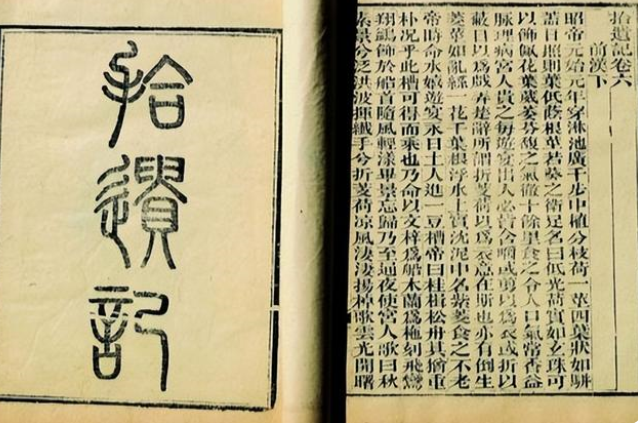 拾遺記
拾遺記卷六
前漢下
昭帝元始元年穿淋池廣千步中植分枝荷一莖四葉狀如駢
蓋日照則葉低蔭根莖若葵之衛足名曰低光荷實如玄珠可
以飾佩花葉葳萎芬馥之氣徹十餘里食之令人口氣常香益
脉理病宮人貴之每遊宴出入必皆含嚼或剪以爲衣或折以
蔽日以爲戲弄楚辭所謂折芰荷以爲衣意在斯也亦有倒生
菱莖如亂絲一花千葉根浮水上實沉泥中名紫菱食之不老
帝時命水嬉遊宴永日土人進一豆槽帝曰桂楫松舟其猶重
朴况乎此槽可得而乘也乃命以文梓爲船木蘭爲柂刻飛鸞
翔鷁飾於船首隨風輕漾畢景忘歸乃至通夜使宮人歌曰秋
素景兮泛洪波揮纖手兮折芰荷凉風淒淒揚棹歌雲光開曙